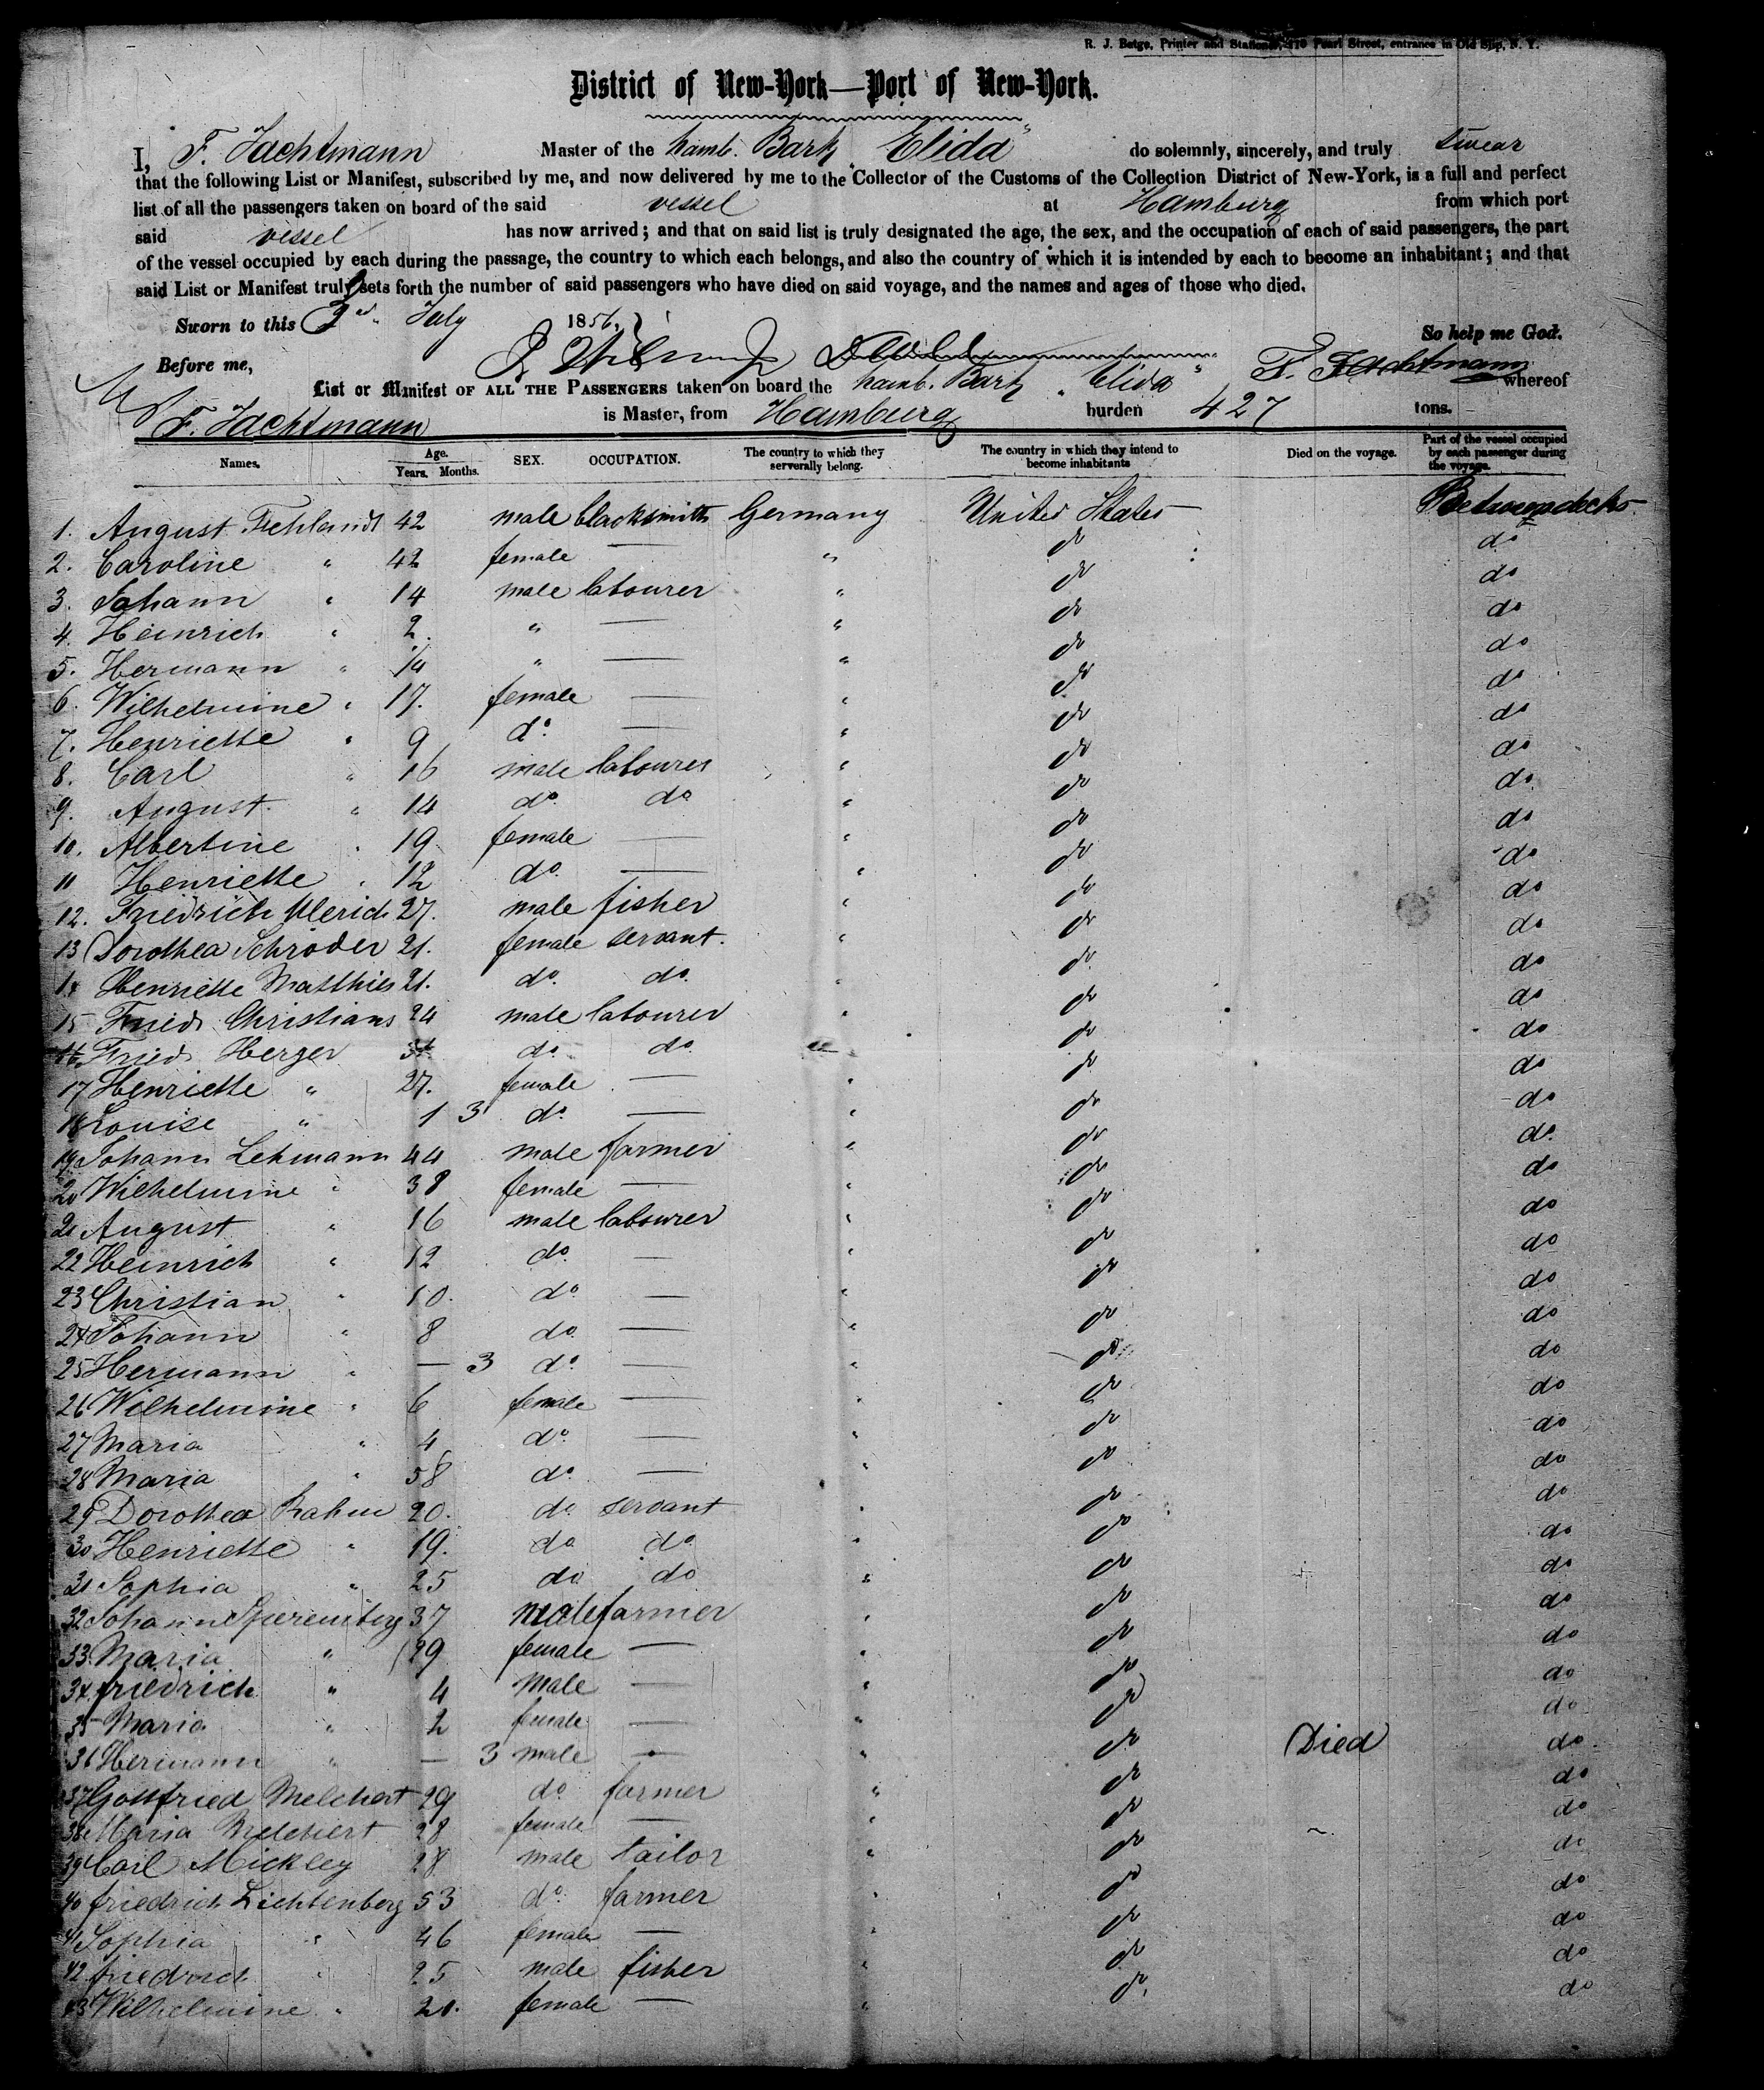 R. J. Betge, Printer and Stationer, 170 Pearl Street, entrance in Old Slip, N. Y.
District of New-York—Port of New-York.
I, F. Jachtmann Master of the hamb. Bark "Elida" do solemnly, sincerely, and truly swear
that the following List or Manifest, subscribed by me, and now delivered by me to the Collector of the Customs of the Collection District of New-York, is a full and perfect
list of all the passengers taken on board of the said vessel at Hamburg from which port
said vessel has now arrived; and that on said list is truly designated the age, the sex, and the occupation of each of said passengers, the part
of the vessel occupied by each during the passage, the country to which each belongs, and also the country of which it is intended by each to become an inhabitant; and that
said List or Manifest truly sets forth the number of said passengers who have died on said voyage, and the names and ages of those who died.
Sworn to this 3d July 1856. So help me God.
Before me, F. Jachtmann
List or Manifest OF ALL THE PASSENGERS taken on board the hamb. Bark "Elida" whereof
F. Jachtmann is Master, from Hamburg burden 427 tons.
Names. Age. Years. Months. SEX. OCCUPATION. The country to which they serverally belong. The country in which they intend to become inhabitants Died on the voyage. Part of the vessel occupied by each passenger during the voyage.
1. August Fehlandt 42 male blacksmith Germany United States Betweendecks
2. Caroline " 42 female — " do do
3. Johann " 14 male labourer " do do
4. Heinrich " 2. " — " do do
5. Hermann " " — " do do
6. Wilhelmine " 17. female — " do do
7. Henriette " 9 do. — " do do
8. Carl " 16 male labourer " do do
9. August " 14 do. do " do do
10. Albertine " 19 female — " do do
11 Henriette " 12 do. — " do do
12. Friedrich Ulerich 27. male fisher " do do
13 Dorothea Schröder 21. female servant. " do do
14 Henriette Matthies 21. do. do. " do do
15 Friedr Christians 24 male labourer " do do
16 Friedr Herger do. do. " do do
17 Henriette " 27. female — " do do
18 Louise " 1 3 do. — " do do
19 Johann Lehmann 44 male farmer " do do
20 Wilhelmine " 38 female — " do do
21 August " 16 male labourer " do do
22 Heinrich " 12 do. — " do do
23 Christian " 10. do — " do do
24 Johann " 8 do. — " do do
25 Hermann " — 3 do. — " do do
26 Wilhelmine " 6 female — " do do
27 Maria " 4 do. — " do do
28 Maria " 58 do. — " do do
29 Dorothea Rahm 20. do. servant " do do
30 Henriette " 19. do do " do do
31 Sophia " 25 do do " do do
32 Johann 37 male farmer " do do
33 Maria " 29 female — " do do
34 friedrich " 4 male — " do do
35 Maria " 2 female — " do do
36 Hermann " — 3 male — " do Died do
37 Gottfried Melchert 29 do. farmer " do do
38 Maria Melchert 28 female — " do do
39 Carl Mickley 28 male tailor " do do
40 friedrich Lichtenberg 53 do. farmer " do do
41 Sophia " 46 female — " do do
42 friedrich " 25 male fisher " do do
43 Wilhelmine " 20. female — " do do